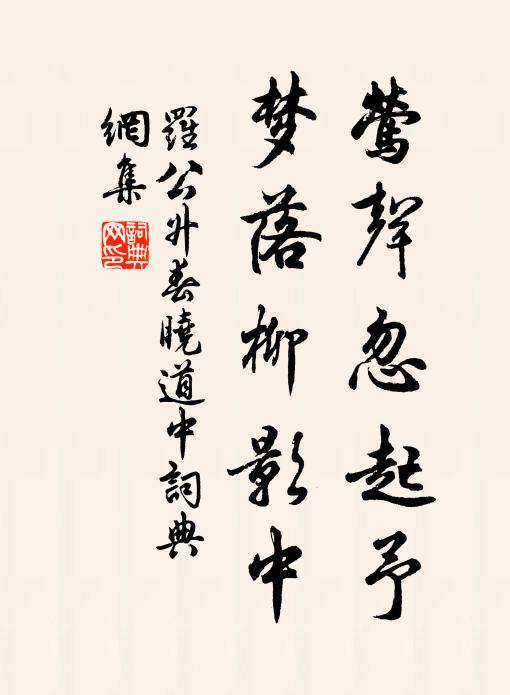 鶯聲忽起予
梦落柳影中
羅公升春曉道中詞典
網集
詞典
网印